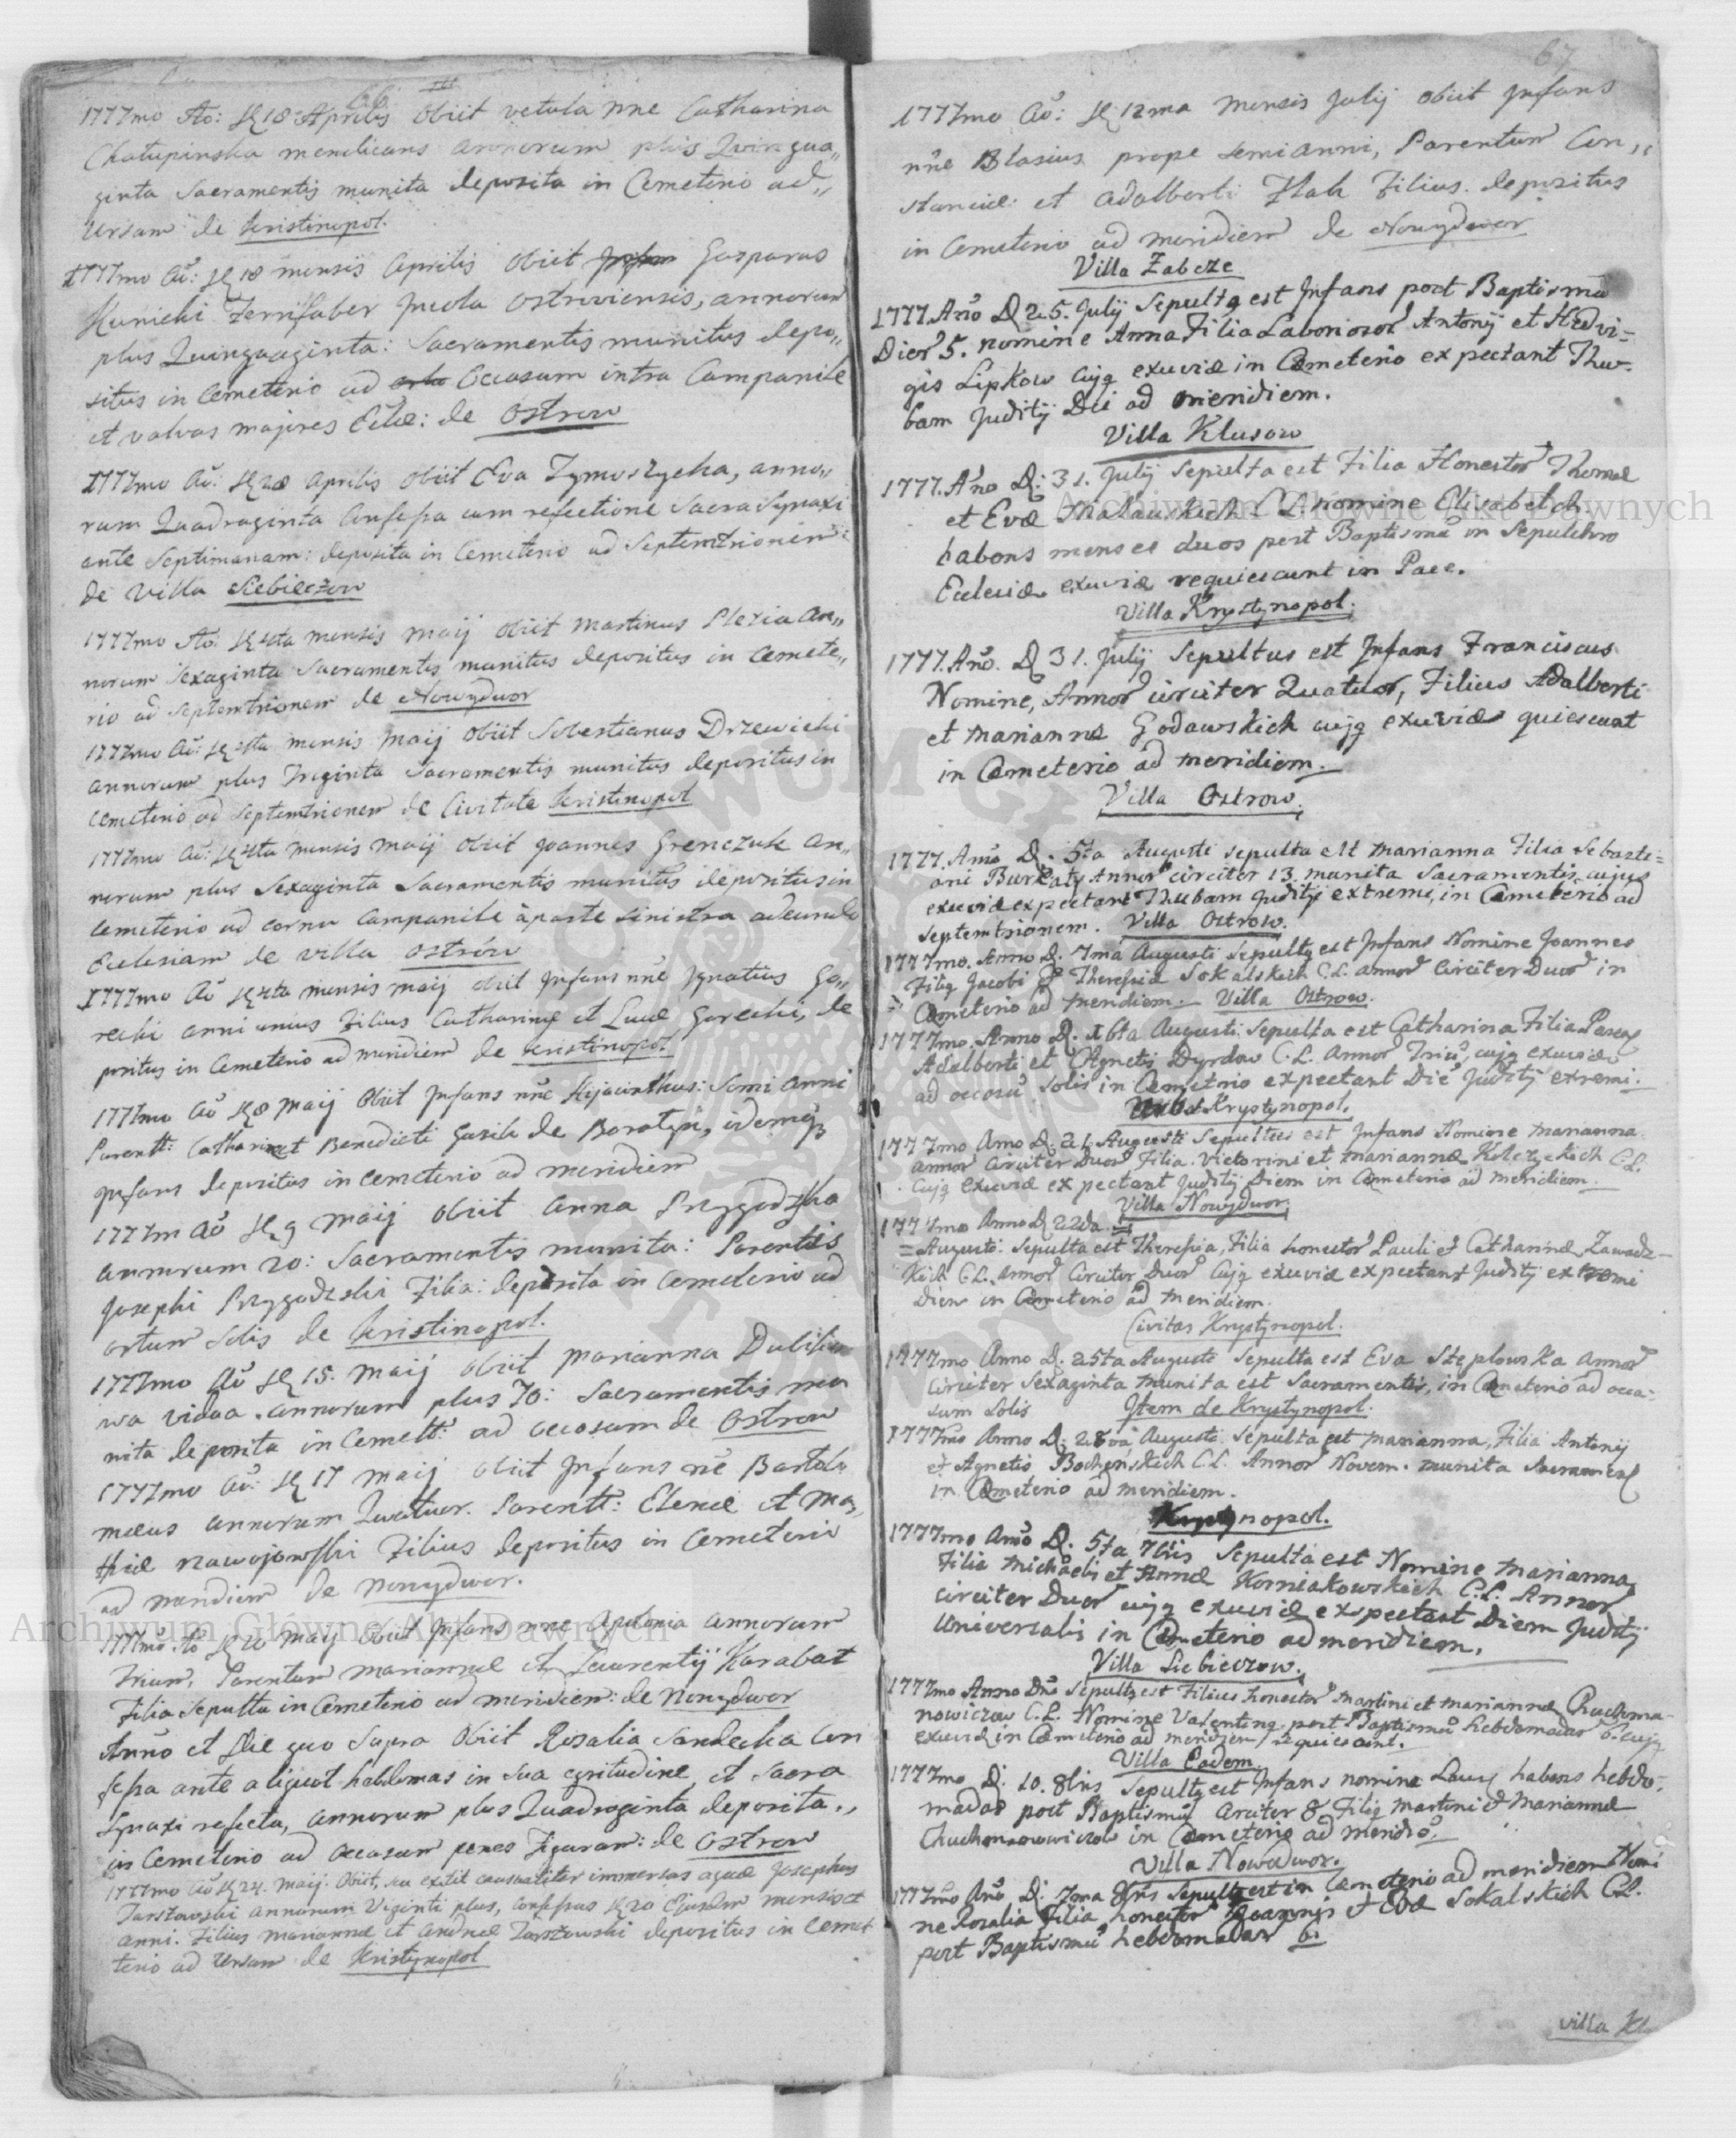 66
1777mo Ao: D 18 Aprilis Obiit vetula nne Catharina
Chałupinska mendicans annorum plus Quinqua,,
ginta Sacramentis munita deposita in Cemeterio ad,,
Ursam de Kristinopol.
1777mo Ao: D 18 mensis Aprilis obiit Gasparus
Kunicki Ferrifaber Incola Ostroviensis, annorum
plus Quinquaginta: Sacramentis munitus depo,,
situs in Cemeterio ad Occasum intra Campanile
et valvas majores Eclae: de Ostrow
1777mo Ao: D 28 Aprilis obiit Eva Tymoszycka, anno,,
rum Quadraginta Confessa cum refectione Sacra Synaxi
ante Septimanam: deposita in Cemeterio ad Septemtrionem:
De Villa Siebieczow
1777mo Ao: D 4ta mensis Maij Obiit Martinus Plezia an,,
norum Sexaginta Sacramentis munitus depositus in Cemete,,
rio ad Septemtrionem de Nowydwor
1777mo Ao: D 4ta mensis Maij Obiit Sebastianus Drzewicki
annorum plus Triginta Sacramentis munitus depositus in
cemeterio ad Septemtrionem de Civitate Kristinopol
1777mo Ao: D 4ta mensis Maij obiit Joannes Grenczuk an,,
norum plus Sexaginta Sacramentis munitus depositus in
Cemeterio ad cornu Campanile a parte sinistra adeundo
Eclesiam de villa Ostrow
1777mo Ao D 4ta mensis Maij obiit Infans nne Ignatius Go,,
recki anni unius Filius Catharinae et Lucae Gorecki, de
positus in Cemeterio ad meridiem de Kristinopol
1777mo Ao D 8 Maij Obiit Infans nne Hijacinthus: Semi anni
Parentt: Catharinae et Benedicti Gasik de Boratyn, idemq
Infans depositus in cemeterio ad meridiem
1777m Ao D 9 Maij obiit Anna Przygodzka
annorum 20: Sacramentis munita: Parentis
Josephi Przygodzki Filia: deposita in Cemeterio ad
ortum Solis de Kristinopol.
1777mo Ao D 15. Maij obiit Marianna Dubiko
wa vidua annorum plus 70: Sacramentis mu
nita deposita in Cemett: ad occasum de Ostrow
1777mo Ao: D 17 Maij obiit Infans ne Bartolo
maeus annorum Quatuor. Parentt: Elenae et Ma,
thiae Nawojowski Filius depositus in Cemeterio
ad meridiem de Nowydwor.
1777mo Ao D 20 Maij Obiit Infans nne Apolonia annorum
Trium, Parentum Mariannae et Laurentij Karabat
Filia Sepulta in Cemeterio ad meridiem: de Nowydwor
Anno et Die quo Supra Obiit Rosalia Sandecka Con
fessa ante aliquot hebdomas in sua egritudine, et Sacra
Synaxi refecta, annorum plus Quadraginta deposita,,
in Cemeterio ad Occasum penes Figuram: de Ostrow
1777mo Ao D 24. Maij. Obiit, seu extit casualiter immersus aquae Josephus
Tarszowski annorum Viginti plus, confessus D 20 Ejusdem mensis et
anni. Filius Mariannae et Andreae Tarszowski depositus in Ceme
terio ad Ursam de Kristynopol
67
1777mo Ao: D 12ma mensis Julij obiit Infans
nne Blasius prope semianni, Parentum Con,,
stanciae et Adalberti Ilak Filius depositus
in Cemeterio ad meridiem de Nowydwor
Villa Zabcze
1777. Ano D 25. Julij Sepultq est Infans post Baptisma
Dier 5. nomine Anna Filia Laborioror Antonij et Hedvi=
gis Lipkow cujq exuviae in Cemeterio expectant Thu-
bam Juditij Dei ad meridiem.
Villa Klusow
1777. Ano D: 31. Julij Sepulta est Filia Honestor Thomae
et Evae C.L. nomine Elisabeth
habens menses duos post Baptisma in Sepulchro
Eclesiae exuviae requiescunt in Pace.
Villa Krystynopol.
1777. Ano. D 31. Julij Sepultus est Infans Franciscus
Nomine, Annor circiter Quatuor, Filius Adalberti
et Mariannae Godawskich cujq exuviae quiescunt
in Cemeterio ad meridiem.
Villa Ostrow.
1777. Ano D. 5ta Augusti sepulta est Marianna Filia Sebasti=
ani Burkaty Annor circiter 13. munita Sacramentis, cujus
exuviae expectant Thubam Juditij extremi, in Cemeterio ad
Septemtrionem. Villa Ostrow.
1777mo. Anno D. 7ma Augusti Sepultq est Infans Nomine Joannes
Filiq Jacobi & Theresiae Sokalskich C.L. annor Circiter Duor in
Cemeterio ad meridiem. Villa Ostrow.
1777mo. Anno D. 16ta Augusti Sepulta est Catharina Filia
Adalberti et Agnetis Dyrdow C.L. Annor Triu, cujq exuviae
ad occasu Solis in Cemeterio expectant Die Juditij extremi.
Krystynopol.
1777mo Anno D. 21. Augusti Sepultus est Infans Nomine Marianna
Annor Circiter Duor Filia Victorini et Mariannae C.L.
Cujq Exuviae expectant Juditij Diem in Cemeterio ad meridiem.
Villa Nowydwor.
1777mo Anno D 22da
=Augusti Sepulta est Theresia, Filia honestor Pauli et Catharinae Zawadz-
kich C.L. Annor Circiter Duor Cujq exuviae expectant Juditij extremi
Diem in Cemeterio ad meridiem.
Civitas Krystynopol.
1777mo Anno D. 25ta Augusti Sepulta est Eva Steplowska Annor
Circiter Sexaginta munita est Sacramentis, in Cemeterio ad occa-
sum Solis Item de Krystynopol.
1777mo Anno D. 28va Augusti Sepulta est Marianna, Filia Antonij
et Agnetis Bochenskich C.L. Annor Novem. munita Sacramens
in Cemeterio ad meridiem.
Krystynopol.
1777mo Ano D. 5ta 7bris Sepulta est Nomine Marianna
Filia Michaelis et Annae Korniakowskich C.L. Annor
circiter Duor cujq exuviae expectant Diem Juditij
Universalis in Cemeterio ad meridiem.
Villa Siebieczow.
1777mo Anno Dni Sepultq est Filius honestor Martini et Mariannae Chuchma-
nowiczow C.L. Nomine Valentinq post Baptismu hebdomadar 6. cujq
exuviae in Cemeterio ad meridiem requiescunt.
Villa Eadem
1777mo D. 10. 8bris Sepultq est Infans nomine habens hebdo-
madas post Baptismu circiter 8 Filiq Martini et Mariannae
in Cemeterio ad meridie.
Villa Nowodwor.
1777mo Ano D. 7ma 8bris Sepultq est in Cemeterio ad meridiem Nomi
ne Rosalia Filia honestor Joannis et Evae Sokalskich C.L.
post Baptismu hebdomadar 6.
villa Kl
Archiwum Główne Akt Dawnych
Archiwum Główne Akt Dawnych